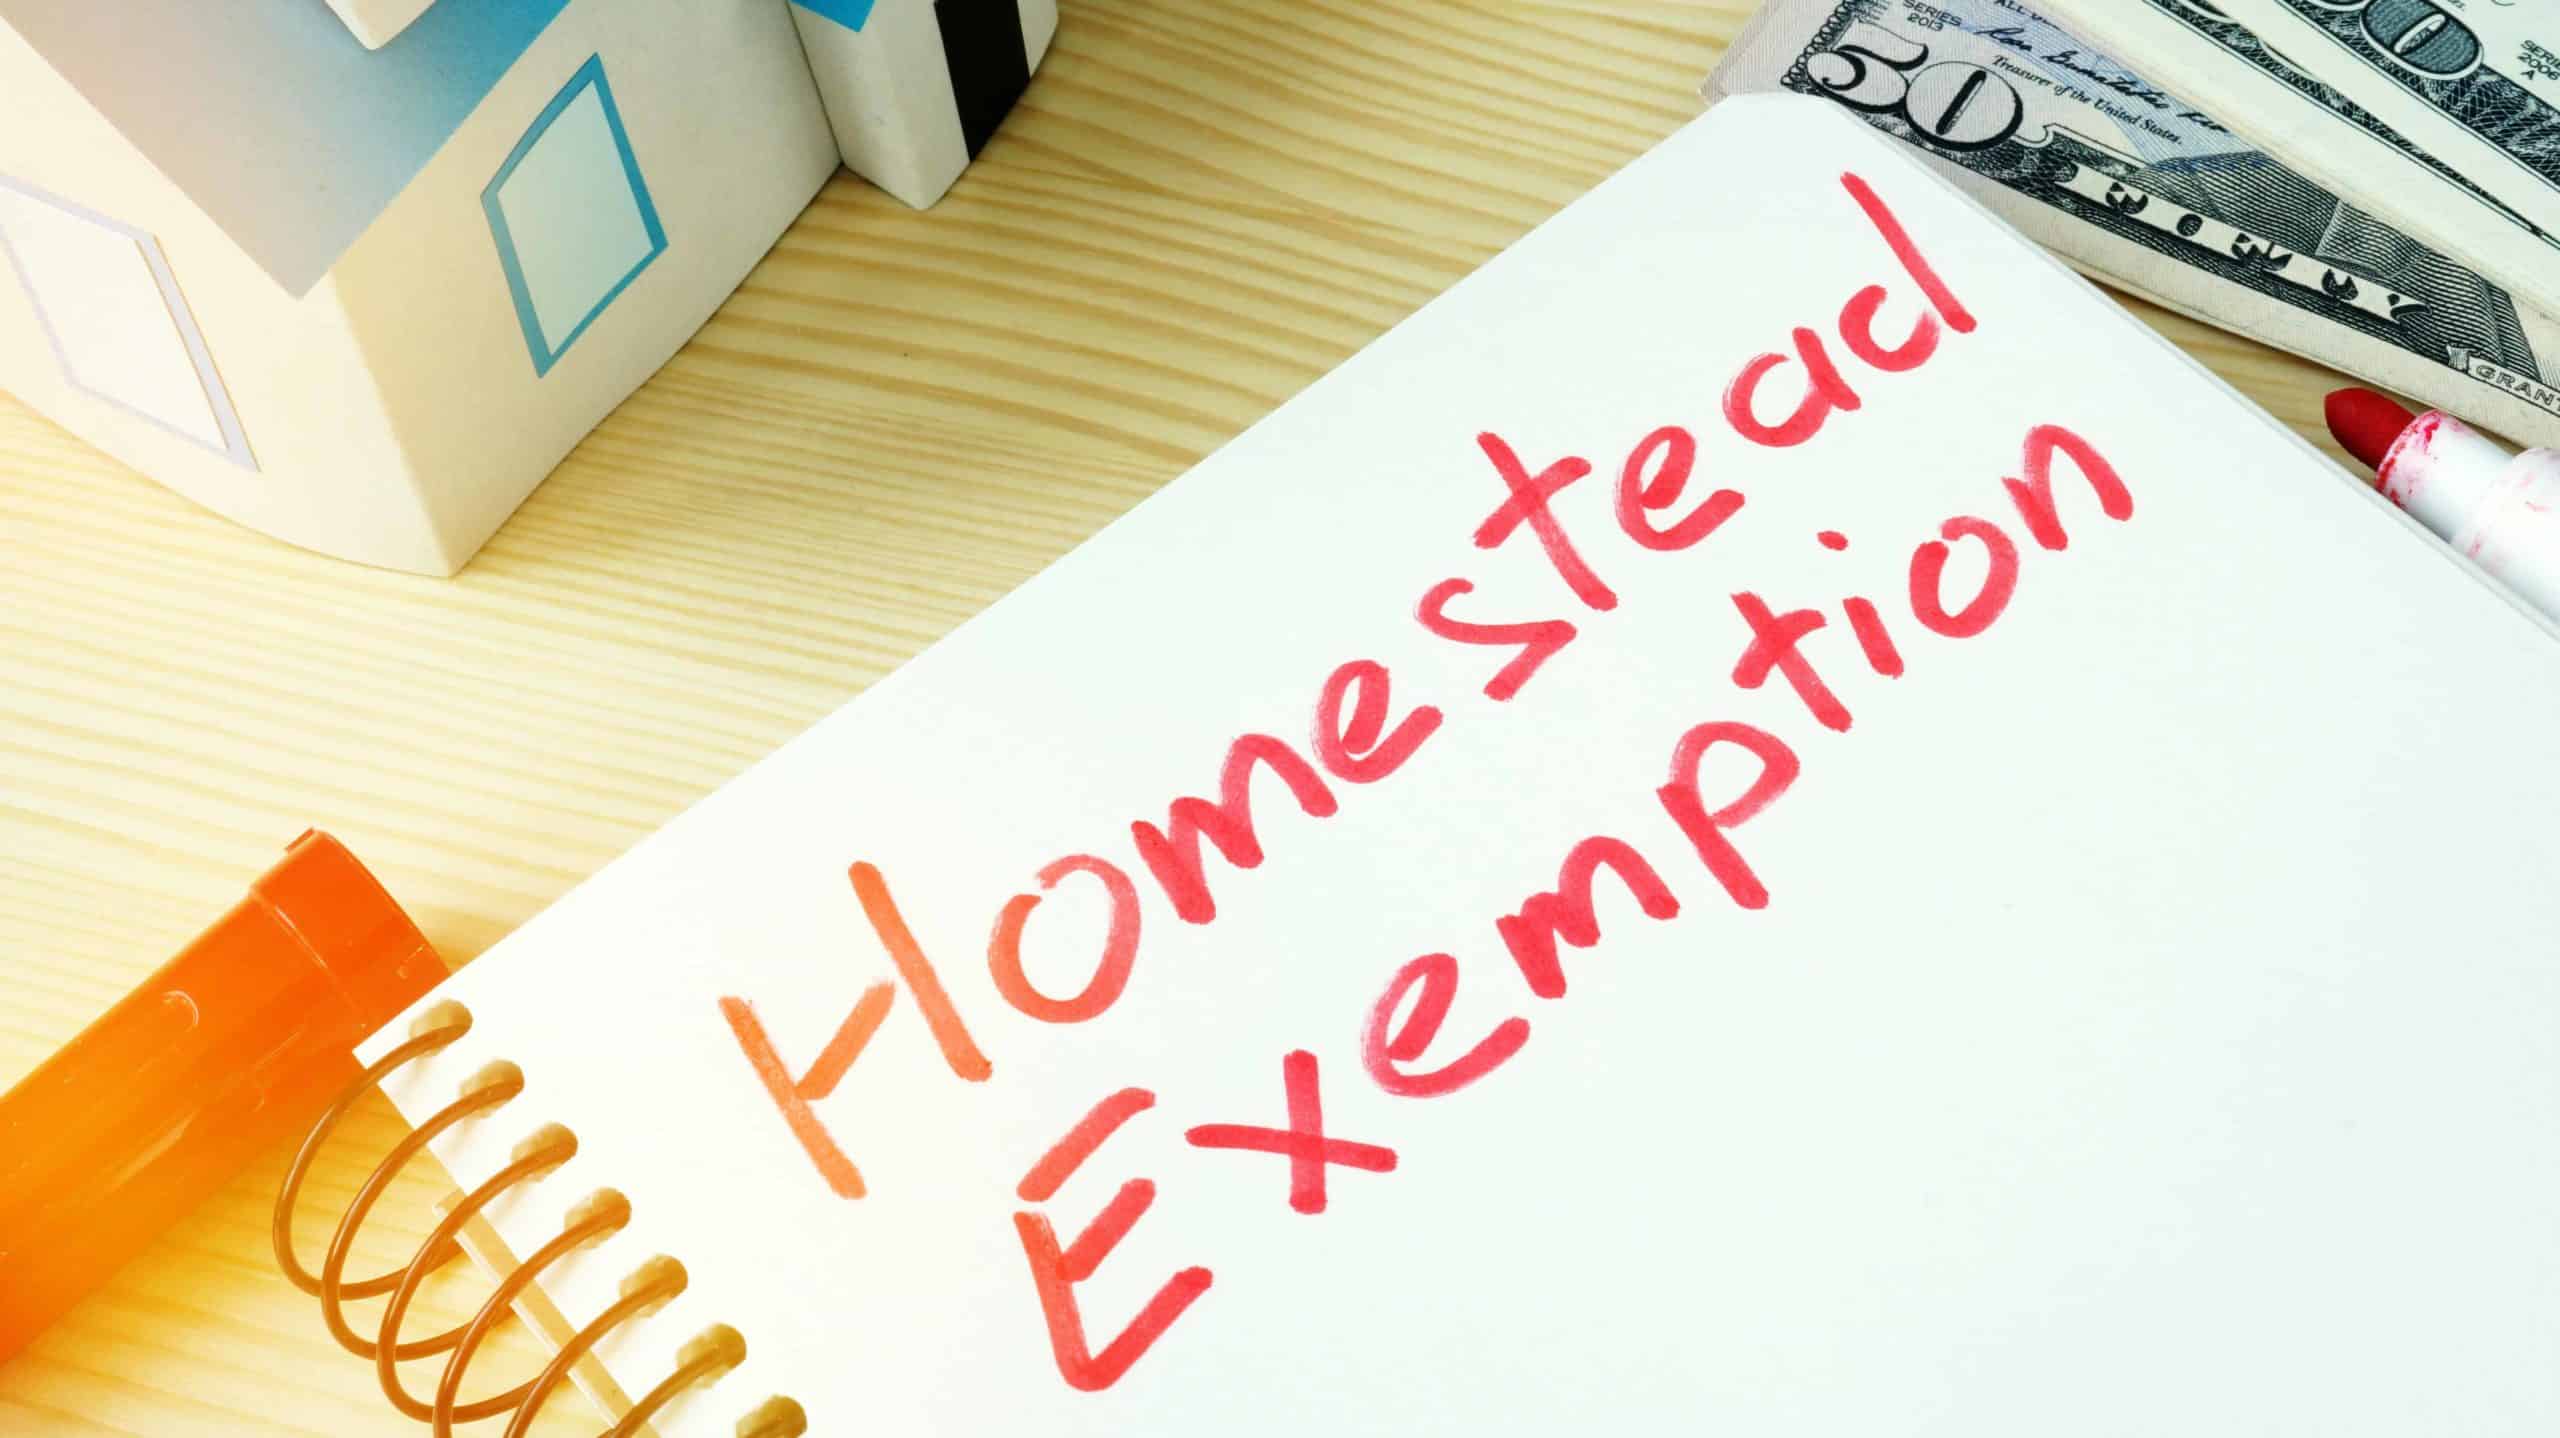 Homestead
Exemption
SERIES
2013
50
Treasurer of the United States.
FIFTY
GRANT
SERIES
2006
A